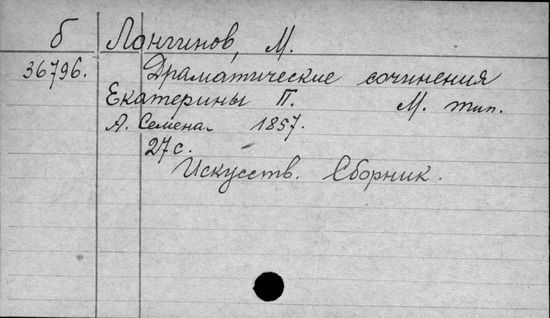 б Лонгинов, М.
36796. Драматические сочинения
Екатерины П. М. тип.
А. Семена. 1857.
27 с.
Искусств. Сборник.